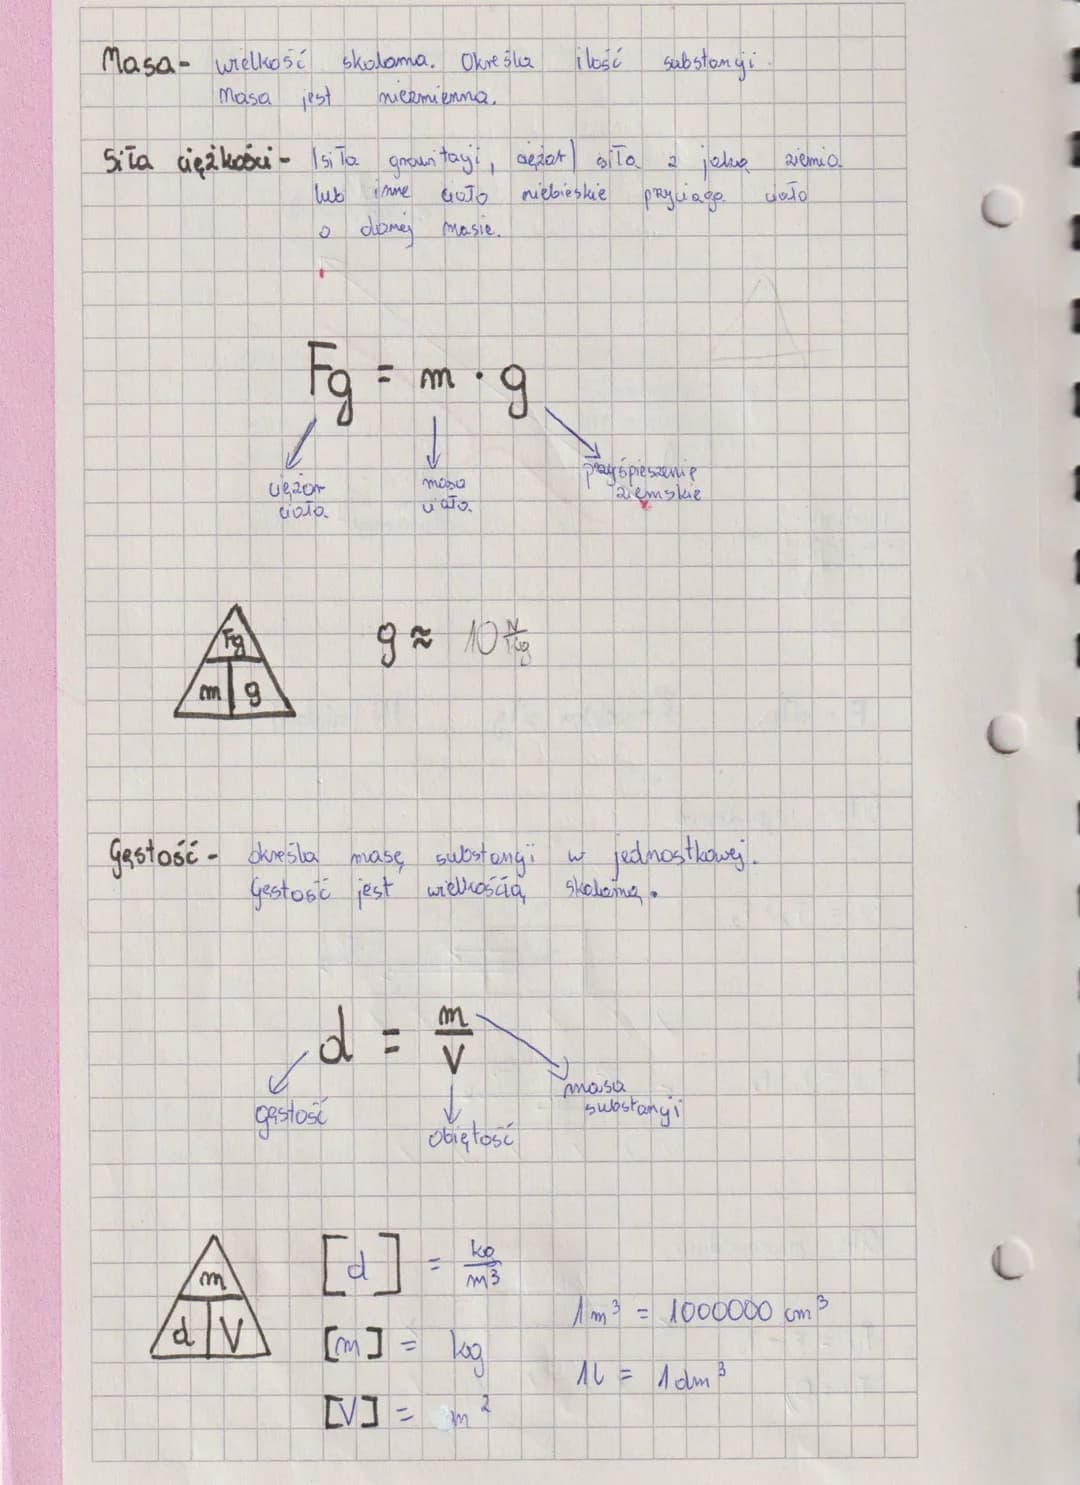 Masa - wielkość skalarna. Określa ilość substancji.
Masa jest niezmienna.
Siła ciężkości - (siła grawitacji, ciężar) siła z jaką ziemia
lub inne ciało niebieskie przyciąga ciało
o danej masie.
Fg = m · g
ciężar
ciała
masa
ciała
przyśpieszenie
ziemskie
Fg
m g
g ≈ 10 N/kg
Gęstość - określa masę substancji w jednostkowej.
Gęstość jest wielkością skalarną.
d = m/V
gęstość
objętość
masa
substancji
m
d V
[d] = kg/m³
[m] = kg
[V] = m²
1m³ = 1000000 cm³
1l = 1dm³